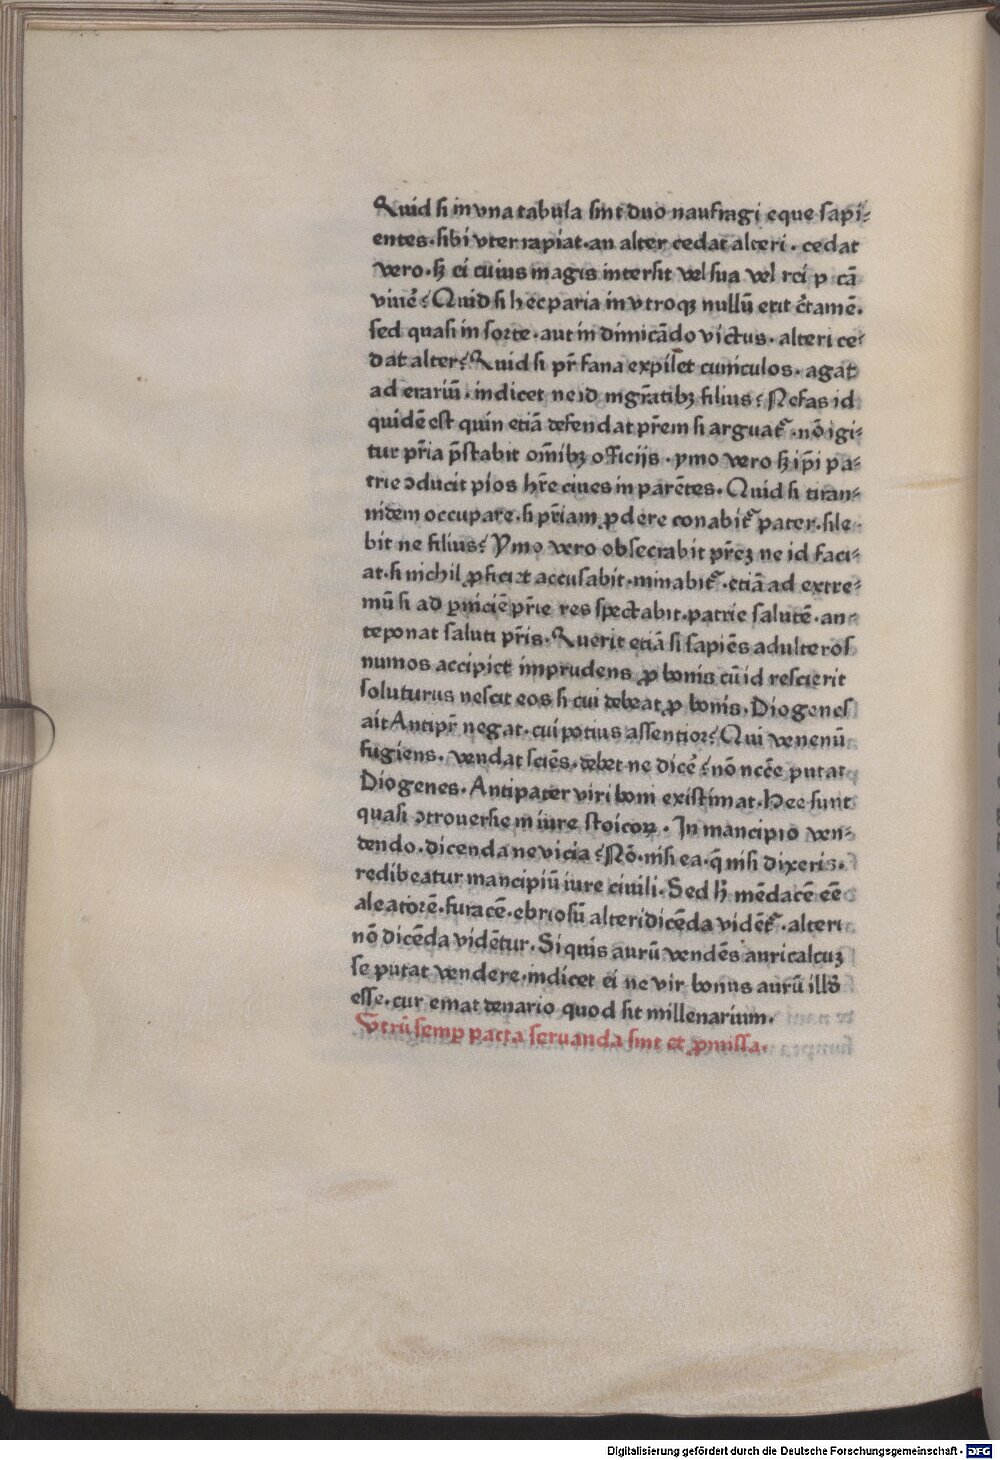 Quid si in vna tabula sint duo naufragi eque sapi⸗
entes·sibi vter rapiat·an alter cedat alteri· cedat
vero·sꝫ ei cuius magis intersit vel sua vel rei p cā
viuē? Quid si hec paria in vtroqꝫ nullū erit c̄tamē.
sed quasi in sorte·aut in dimicādo victus· alteri ce⸗
dat alter? Quid si pr̄ fana expilet cuniculos· agat
ad erariū· indicet ne id mgr̄atibꝫ filius? Nefas id
quidē est quin etiā defendat pr̄em si arguat᷑·nō igi⸗
tur pr̄ia p̄stabit om̄ibꝫ officijs· ymo vero sꝫ ip̄i pa⸗
trie ↄducit pios hr̄e ciues in parētes. Quid si tiran⸗
nidem occupare·si pr̄iam ꝓdere conabit᷑ pater·sile⸗
bit ne filius? Ymo vero obsecrabit pr̄eꝫ ne id faci⸗
at·si nichil ꝓficiet accusabit·minabit᷑·etiā ad extre⸗
mū si ad ꝑniciē pr̄ie res spectabit·patrie salutē·an⸗
teponat saluti pr̄is. Querit etiā si sapiēs adulteros
numos accipiet imprudens ꝓ bonis cū id rescierit
soluturus ne sit eos si cui debeat ꝓ bonis. Diogenes
ait Antipr̄ negat·cui potius assentior? Qui venenū
fugiens· vendat sciēs·debet ne dicē? nō ncc̄e putat
Diogenes. Antipater viri boni existimat·Hee sunt
quasi ↄtrouersie in iure stoicoꝝ. In mancipio ven⸗
dendo·dicenda ne vicia? Nō·nisi ea·q̄ nisi dixeris·
redibeatur mancipiū iure ciuili. Sed h̄ mēdacē eē
aleatorē·furacē·ebriosū alteri dicēda vidēt᷑·alteri
nō dicēda vidētur. Si quis aurū vendēs auricalcuꝫ
se putat vendere·indicet ei ne vir bonus aurū illđ
esse·cur emat denario quod sit millenarium.
Vtrū semꝑ pacta seruanda sint et ꝓmissa.
Digitalisierung gefördert durch die Deutsche Forschungsgemeinschaft - DFG